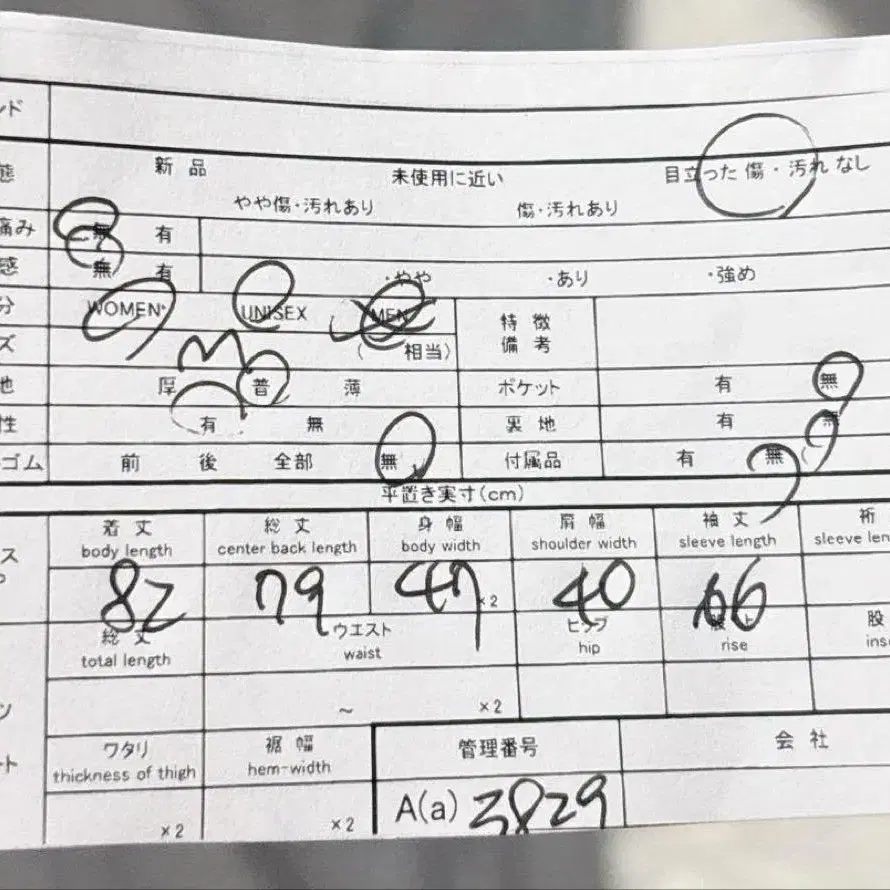 ンド
態 新品 未使用に近い 目立った傷・汚れなし
やや傷・汚れあり 傷・汚れあり
痛み 無 有
感 無 有 ・やや ・あり ・強め
分 WOMEN UNISEX MEN 特徴
備考
ズ M ( 相当)
地 厚 普 薄 ポケット 有 無
性 有 無 裏地 有 無
ゴム 前 後 全部 無 付属品 有 無 (
平置き実寸(cm)
着丈 総丈 身幅 肩幅 袖丈 裄
body length center back length body width shoulder width sleeve length sleeve len
82 79 47 ×2 40 66
総丈 ウエスト ヒップ 股上 股
total length waist hip rise ins
~ ×2
ワタリ 裾幅 管理番号 会社
thickness of thigh hem-width
×2 ×2 A(a) 3829